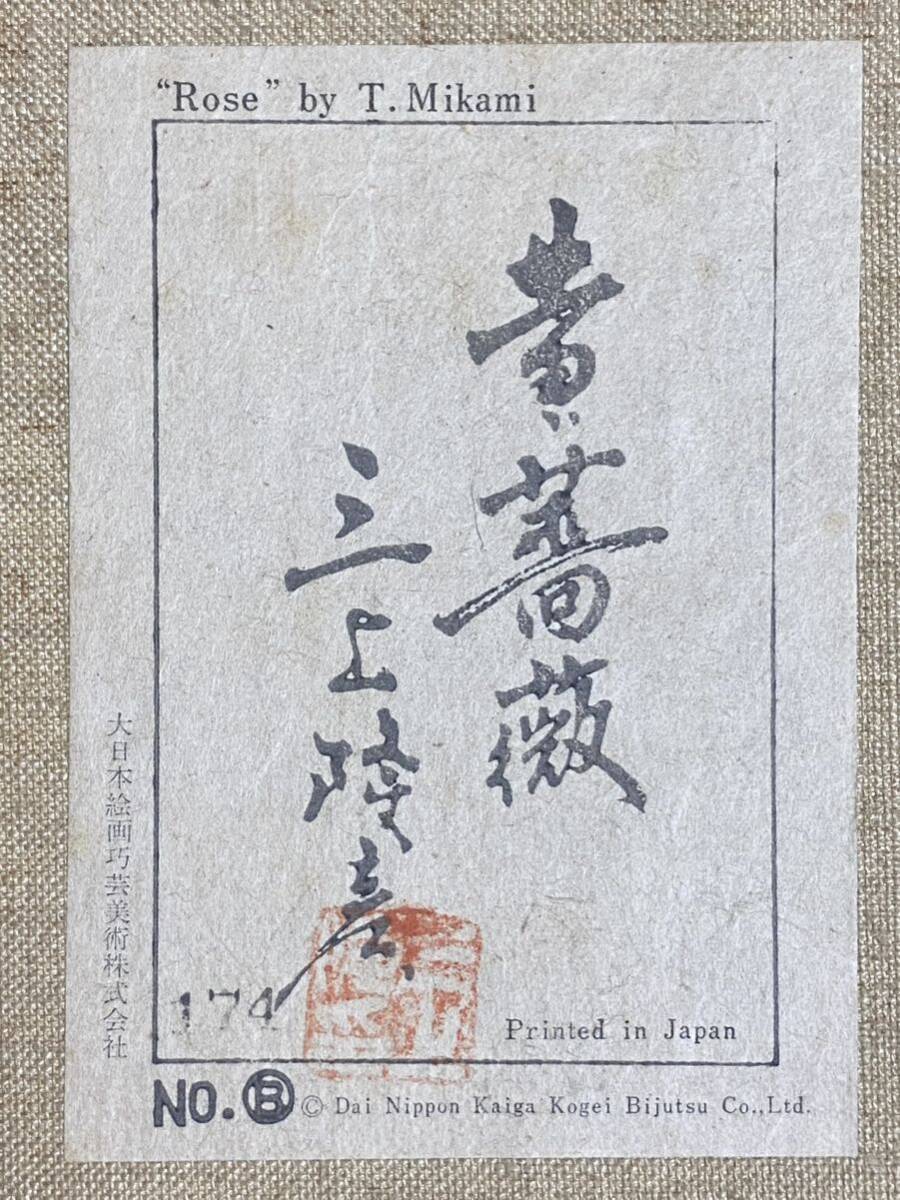 “Rose” by T.Mikami
黄薔薇
三上隆彦
174
Printed in Japan
大日本絵画巧芸美術株式会社
NO.Ⓑ © Dai Nippon Kaiga Kogei Bijutsu Co.,Ltd.